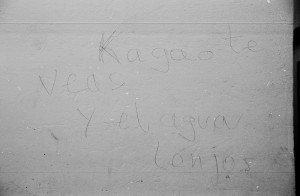 Kagao te
veas
y el agua
lenjos